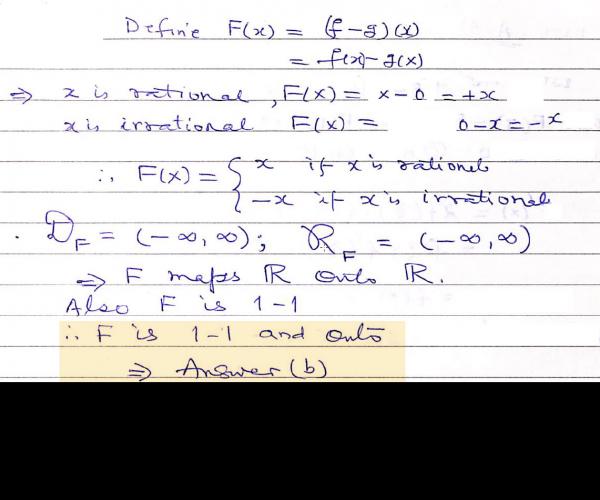 Define F(x) = (f-g)(x)
= f(x)-g(x)
⇒ x is rational, F(x) = x-0 = +x
x is irrational F(x) = 0-x = -x
∴ F(x) = { x if x is rational
-x if x is irrational
. D_F = (-∞, ∞); R_F = (-∞, ∞)
⇒ F maps ℝ onto ℝ.
Also F is 1-1
∴ F is 1-1 and onto
⇒ Answer (b)